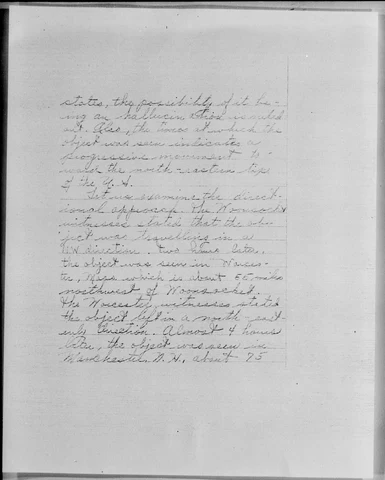 states, the possibility of it be-
ing an hallucin ation is ruled
out. Also, the times at which the
object was seen indicate a
progressive movement to-
wards the north-eastern tip
of the U.S.
Let us examine the direct-
ional approach. The Woonsocket
witnesses stated that the ob-
ject was travelling in a
NW direction. two hours later,
the object was seen in Worces-
ter, Mass which is about 55 miles
northwest of Woonsocket.
The Worcester witnesses stated
the object left in a north-east-
erly direction. Almost 4 hours
later, the object was seen in
Winchester, N.H. about 75